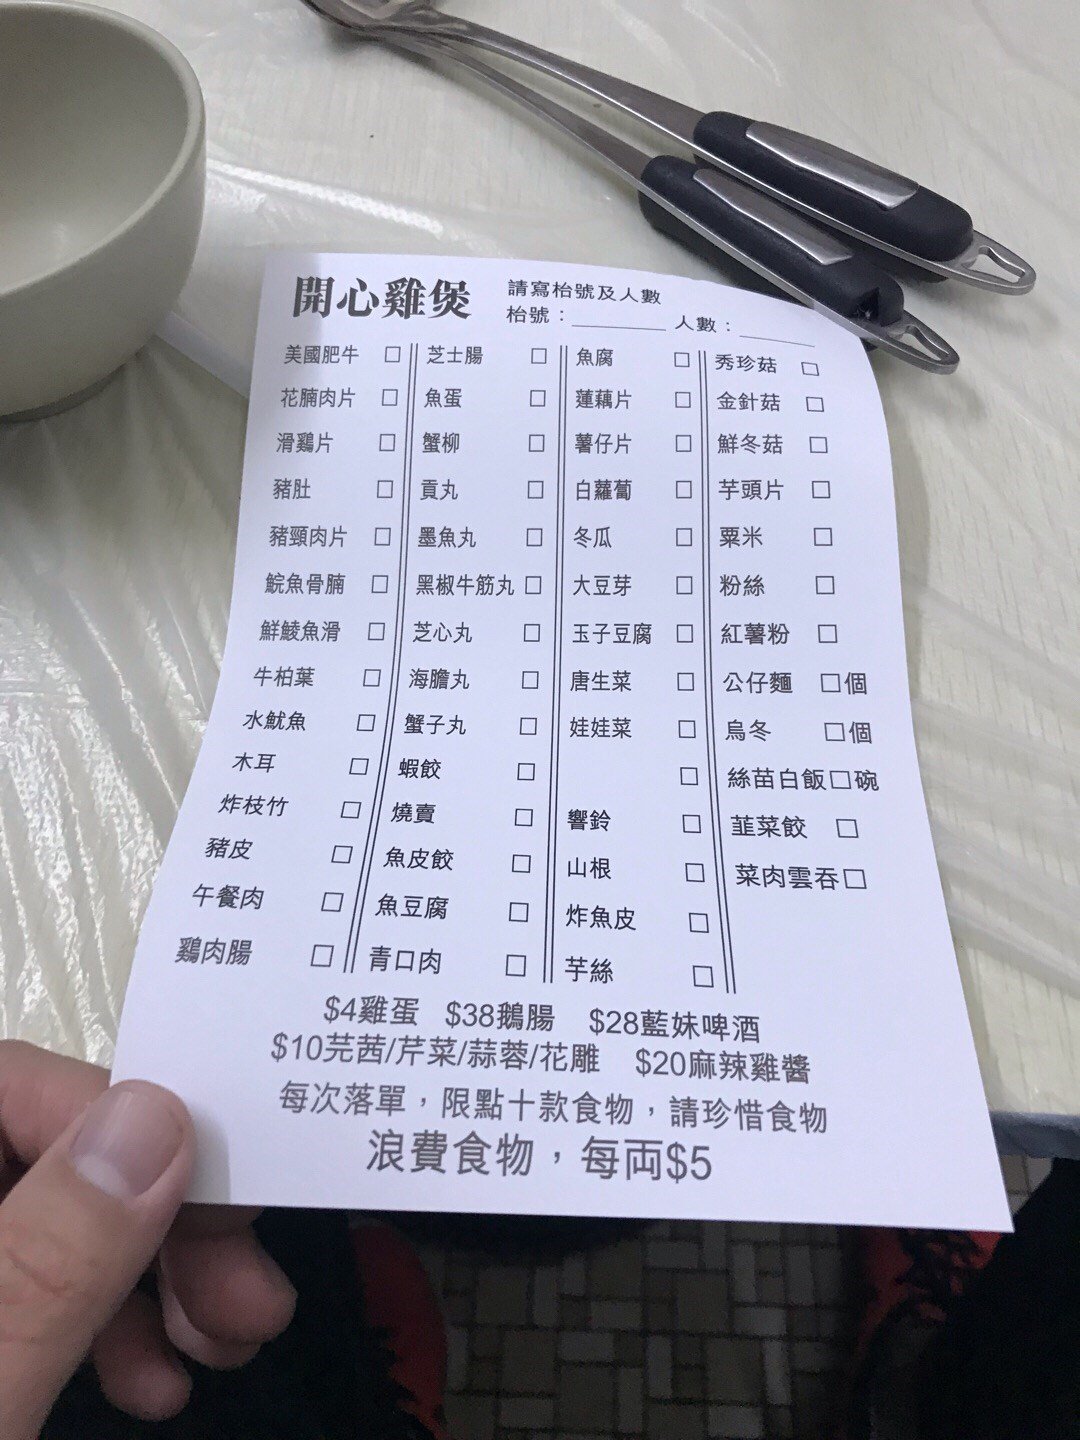 開心雞煲
請寫枱號及人數
枱號：________ 人數：________
美國肥牛 □
花腩肉片 □
滑鷄片 □
豬肚 □
豬頸肉片 □
鯇魚骨腩 □
鮮鯪魚滑 □
牛柏葉 □
水魷魚 □
木耳 □
炸枝竹 □
豬皮 □
午餐肉 □
鷄肉腸 □
芝士腸 □
魚蛋 □
蟹柳 □
貢丸 □
墨魚丸 □
黑椒牛筋丸 □
芝心丸 □
海膽丸 □
蟹子丸 □
蝦餃 □
燒賣 □
魚皮餃 □
魚豆腐 □
青口肉 □
魚腐 □
蓮藕片 □
薯仔片 □
白蘿蔔 □
冬瓜 □
大豆芽 □
玉子豆腐 □
唐生菜 □
娃娃菜 □
□
響鈴 □
山根 □
炸魚皮 □
芋絲 □
秀珍菇 □
金針菇 □
鮮冬菇 □
芋頭片 □
粟米 □
粉絲 □
紅薯粉 □
公仔麵 □個
烏冬 □個
絲苗白飯□碗
韮菜餃 □
菜肉雲吞□
$4雞蛋 $38鵝腸 $28藍妹啤酒
$10芫茜/芹菜/蒜蓉/花雕 $20麻辣雞醬
每次落單，限點十款食物，請珍惜食物
浪費食物，每両$5